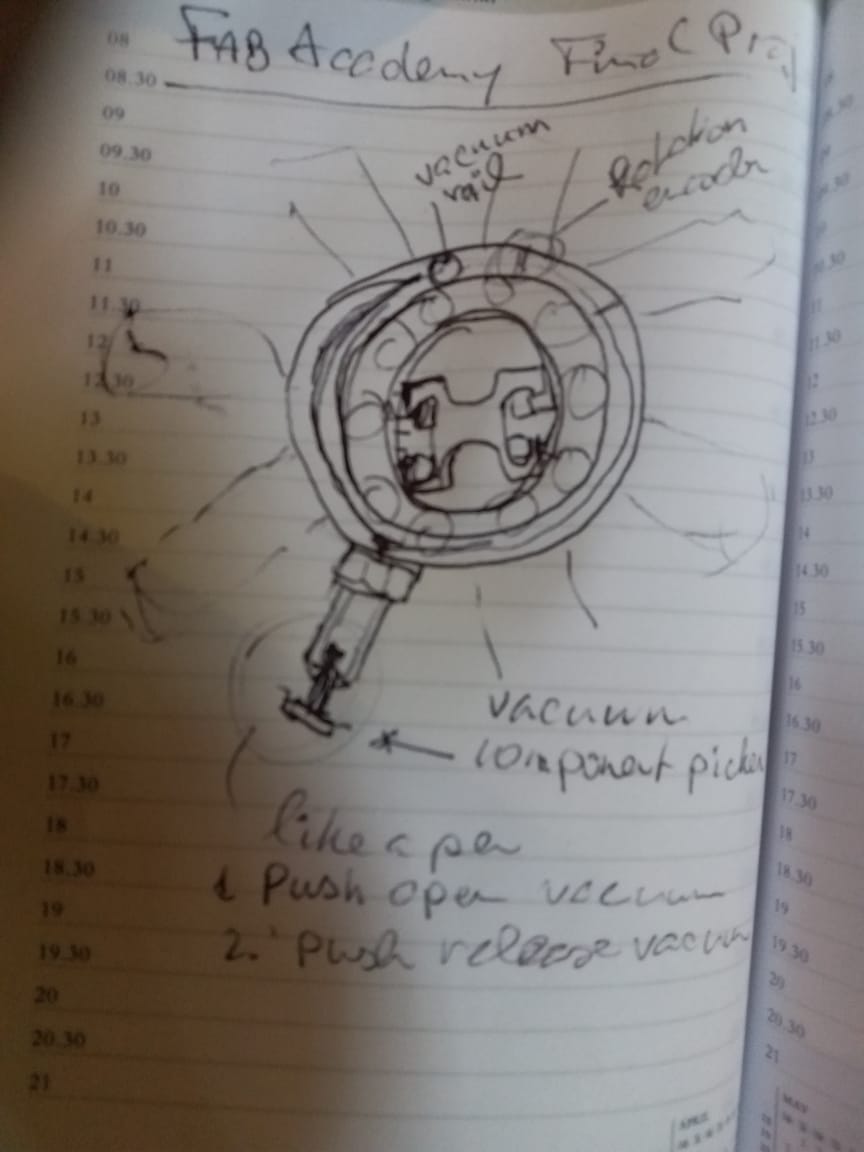 FAB Academy Final Proj
08
08.30
09
09.30
10
10.30
11
11.30
12
12.30
13
13.30
14
14.30
15
15.30
16
16.30
17
17.30
18
18.30
19
19.30
20
20.30
21
vacuum
rail
Rotation
encoder
vacuum
component picker
like a pen
1 Push open vacuum
2. Push release vacuum
10.30
11
11.30
12
12.30
13
13.30
14
14.30
15
15.30
16
16.30
17
17.30
18
18.30
19
19.30
20
20.30
21
APRIL
MAY